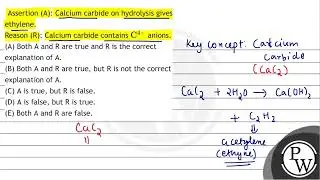 Assertion (A): Calcium carbide on hydrolysis gives
ethylene.
Reason (R): Calcium carbide contains C⁴⁻ anions.
(A) Both A and R are true and R is the correct
explanation of A.
(B) Both A and R are true, but R is not the correct
explanation of A.
(C) A is true, but R is false.
(D) A is false, but R is true.
(E) Both A and R are false.
CaC₂
Key Concept: Calcium
Carbide
(CaC₂)
CaC₂ + 2H₂O → Ca(OH)₂
+ C₂H₂
⇓
acetylene
(ethyne)
PW